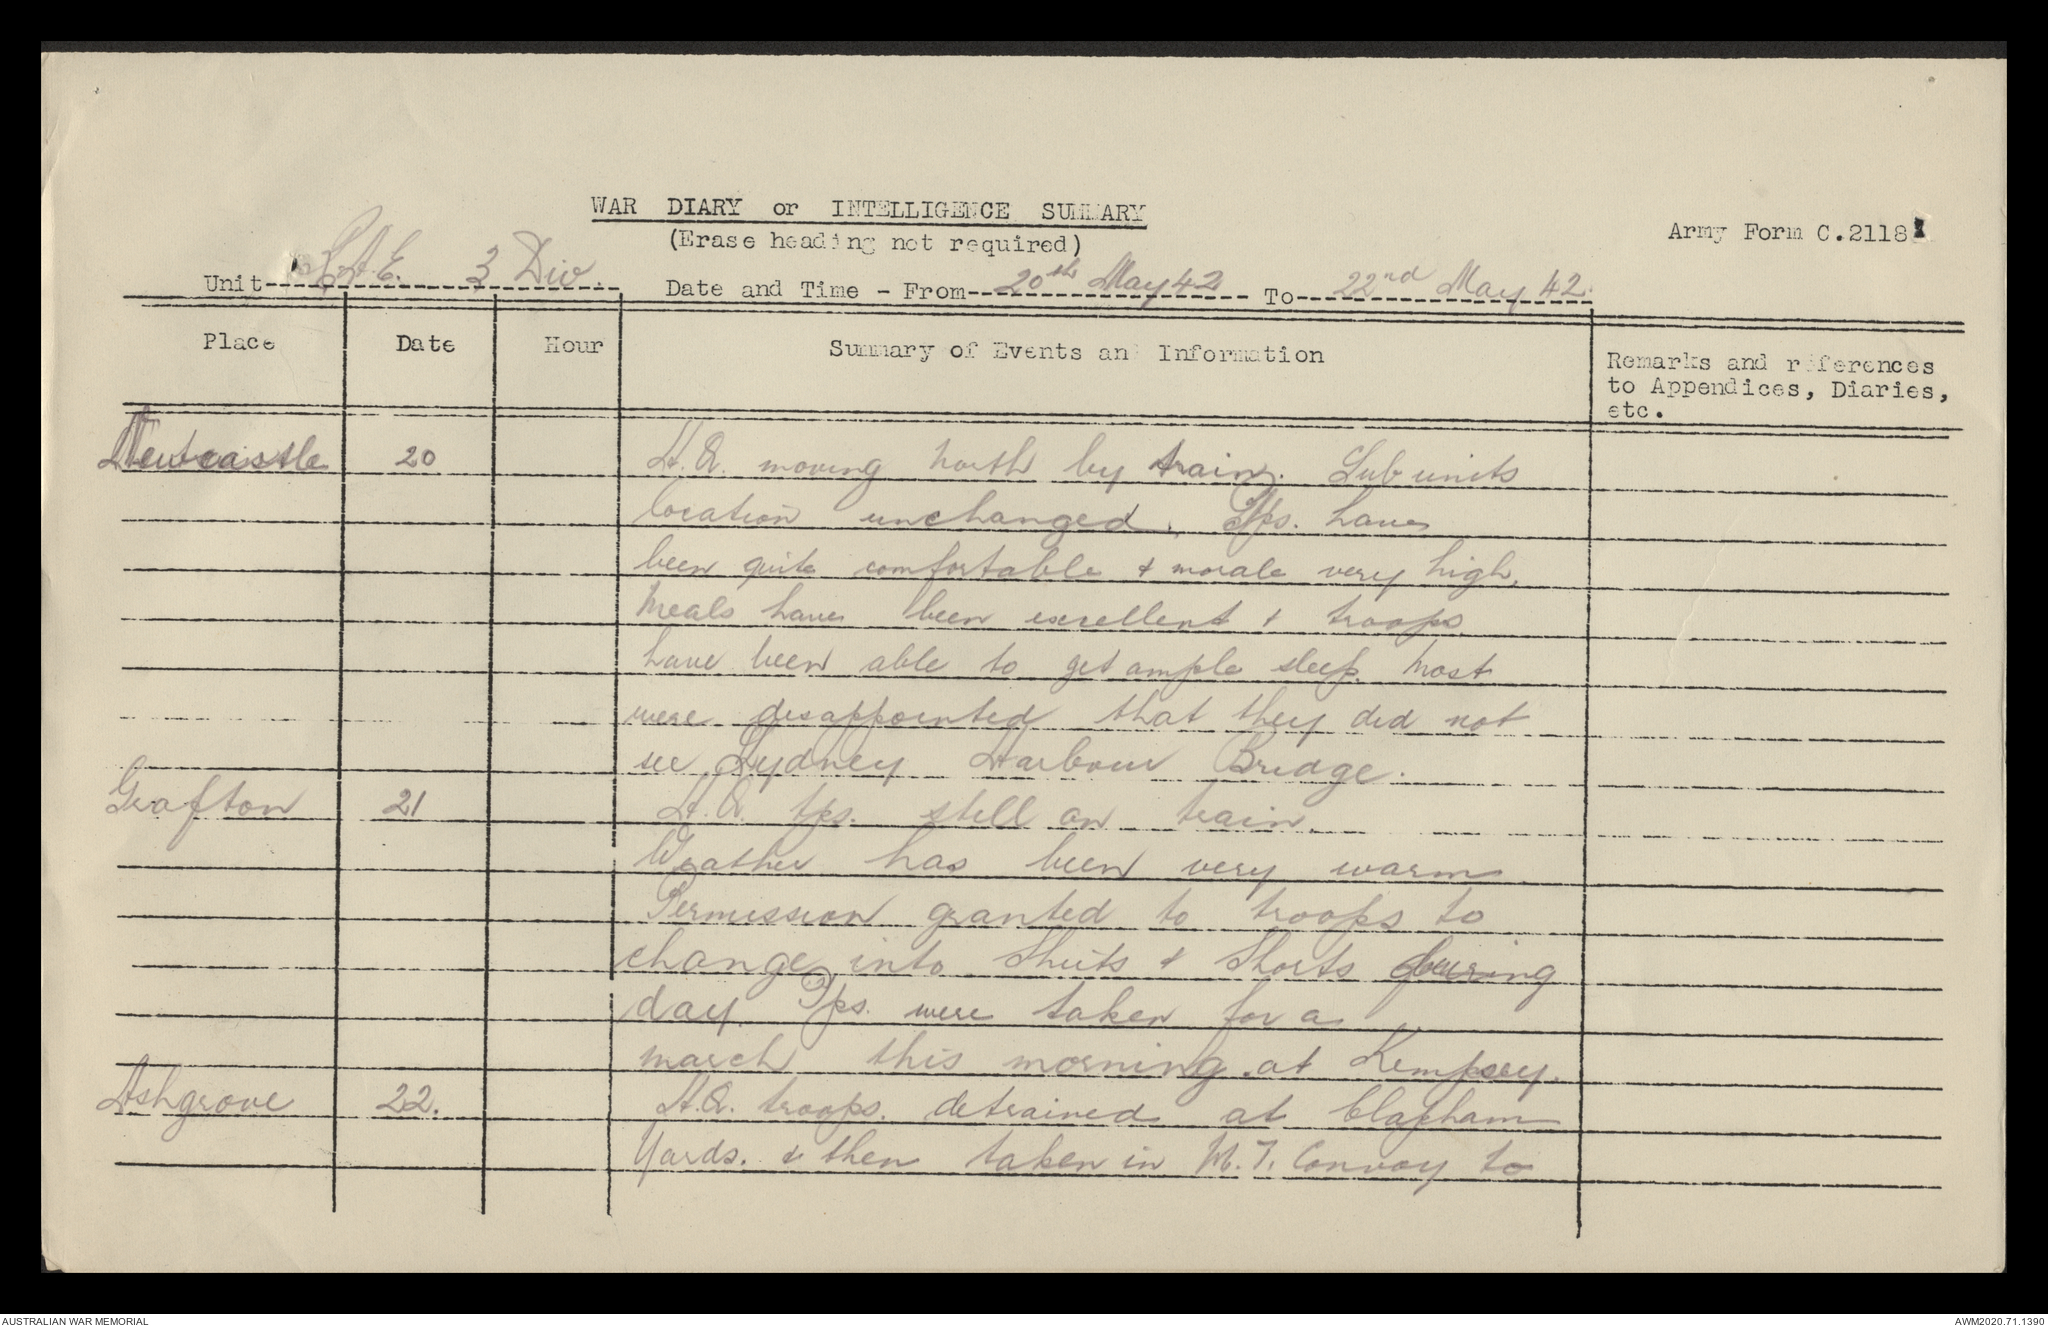 WAR DIARY or INTELLIGENCE SUMMARY
(Erase heading not required)
Army Form C.2118
Unit R.A.E. 3 Div. Date and Time - From 20th May 42 To 22nd May 42.
Place Date Hour Summary of Events and Information Remarks and references
to Appendices, Diaries,
etc.
Newcastle 20 H.Q. moving north by train. Sub units
location unchanged. Tps. have
been quite comfortable & morale very high.
Meals have been excellent & troops
have been able to get ample sleep. Most
were disappointed that they did not
see Sydney Harbour Bridge.
Grafton 21 H.Q. tps. still on train.
Weather has been very warm
Permission granted to troops to
change into Shirts & Shorts during
day. Tps. were taken for a
march this morning at Kempsey.
Ashgrove 22. H.Q. troops. detrained at Clapham
Yards. & then taken in M.T. Convoy to
AUSTRALIAN WAR MEMORIAL
AWM2020.71.1390